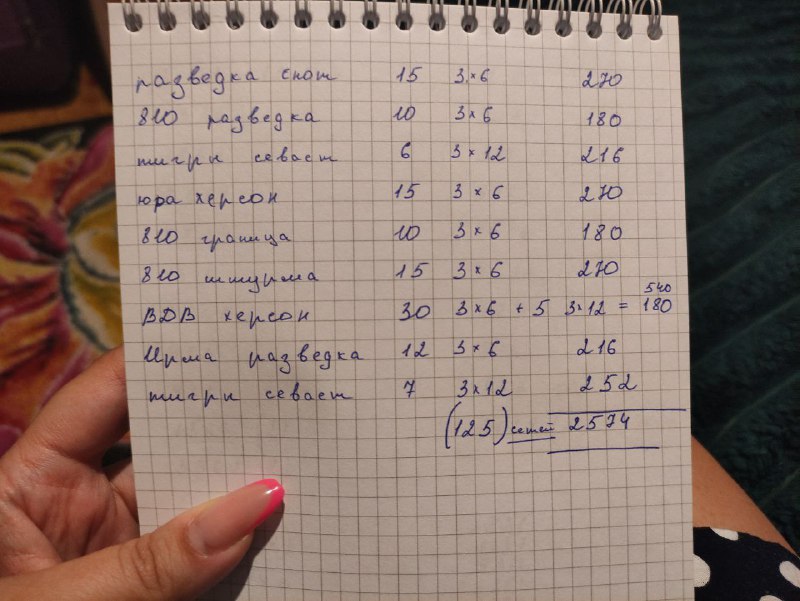 разведка спот 15 3×6 270
810 разведка 10 3×6 180
тигры севаст 6 3×12 216
юра херсон 15 3×6 270
810 граница 10 3×6 180
810 штурма 15 3×6 270
540
ВДВ херсон 30 3×6 + 5 3×12 = 180
Ирма разведка 12 3×6 216
тигры севаст 7 3×12 252
(125) сетей 2574